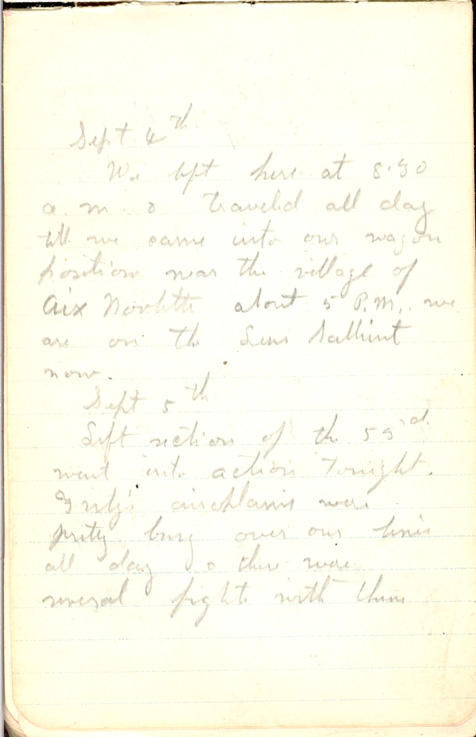 Sept 4th
We left here at 8:30
a.m. & traveled all day
till we came into our wagon
position near the village of
Aix Noulette about 5 P.M., we
are on the Lens Sallient
now.
Sept 5th
Left section of the 55rd
went into action tonight.
airoplanes were
pretty busy over our lines
all day & there were
several fights with them